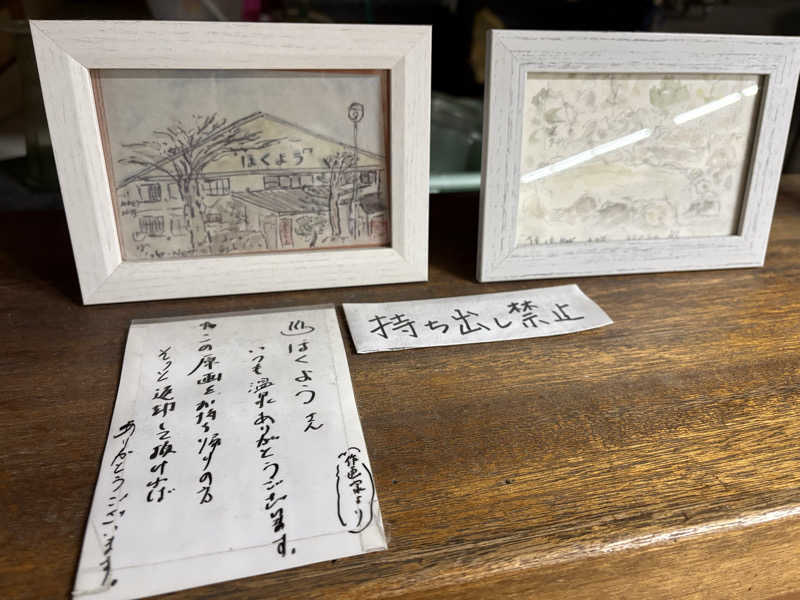 はくよう
持ち出し禁止
♨はくようさん
いつも温泉ありがとうございます。
この原画をお持ち帰りの方
そっと返却して頂ければ
ありがとうございます。
(作画家より)